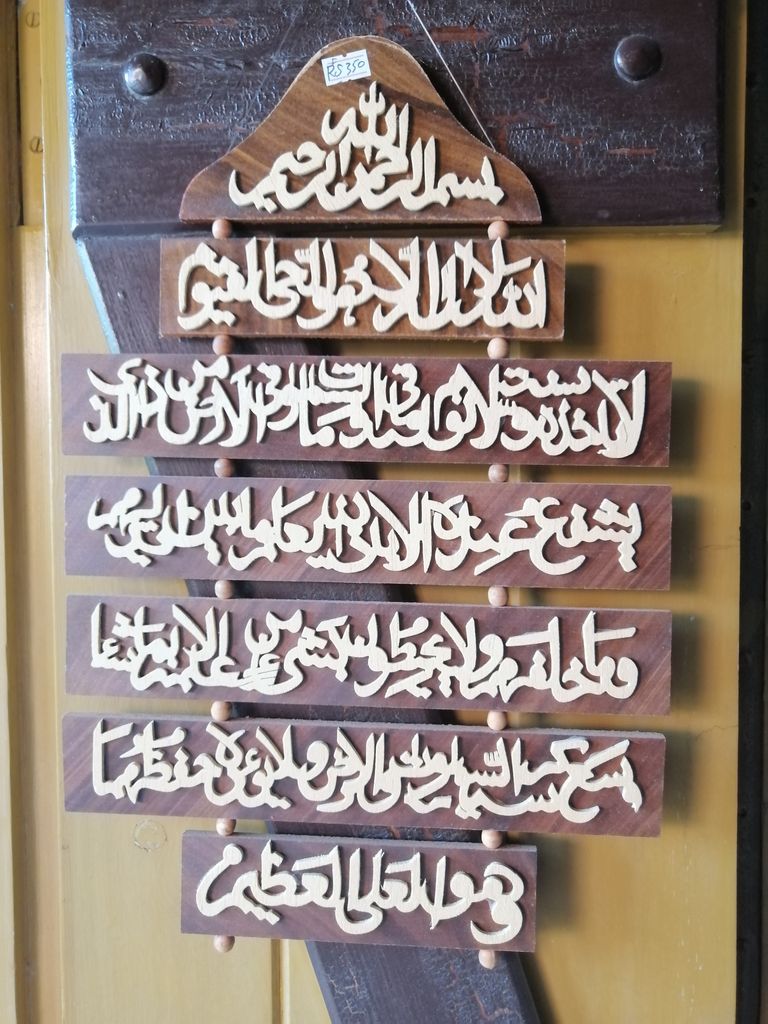 RS 350
بسم الله الرحمن الرحيم
الله لا اله الا هو الحي القيوم
لا تاخذه سنة ولا نوم له ما في السموات وما في الارض من ذا الذي
يشفع عنده الا باذنه يعلم ما بين ايديهم
وما خلفهم ولا يحيطون بشيء من علمه الا بما شاء
وسع كرسيه السموات والارض ولا يؤده حفظهما
وهو العلي العظيم